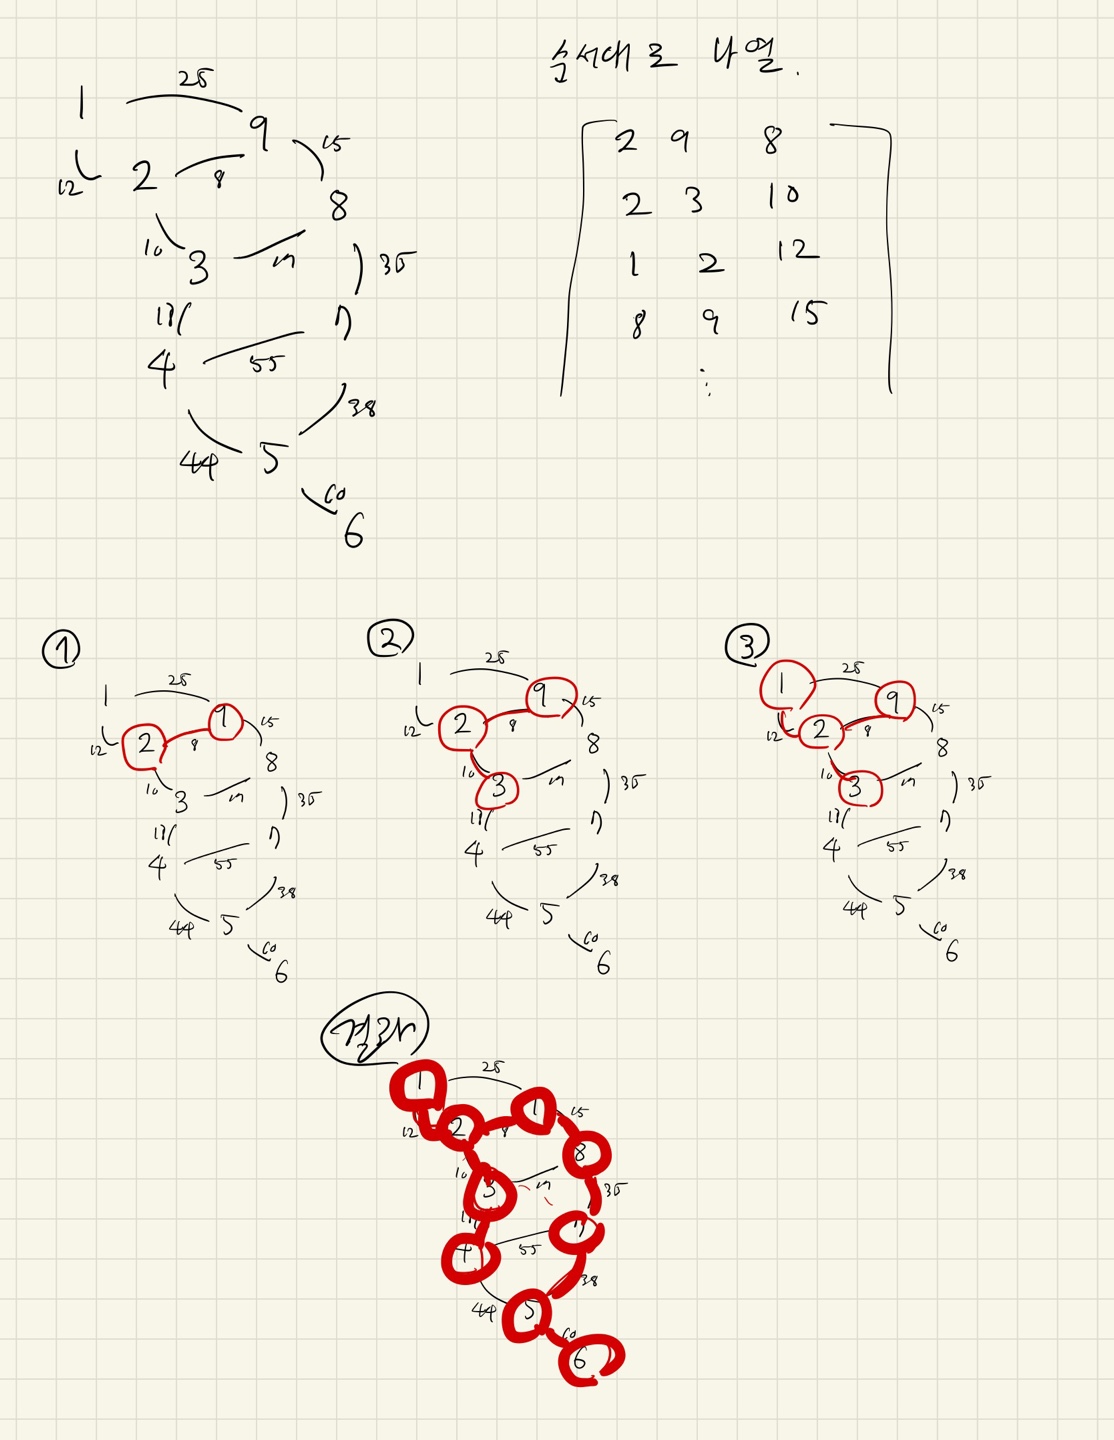 순서대로 나열.
1 25 9
12 2 8 15
8
10 3 17 35
17 7
4 55
38
44 5
60
6
2 9 8
2 3 10
1 2 12
8 9 15
⋮
①
1 25 9
12 2 8 15
8
10 3 17 35
17 7
4 55
38
44 5
60
6
②
1 25 9
12 2 8 15
8
10 3 17 35
17 7
4 55
38
44 5
60
6
③
1 25 9
12 2 8 15
8
10 3 17 35
17 7
4 55
38
44 5
60
6
결과
1 25 1
12 2 8 15
8
10 3 17 35
7
4 55
38
44 5
60
6